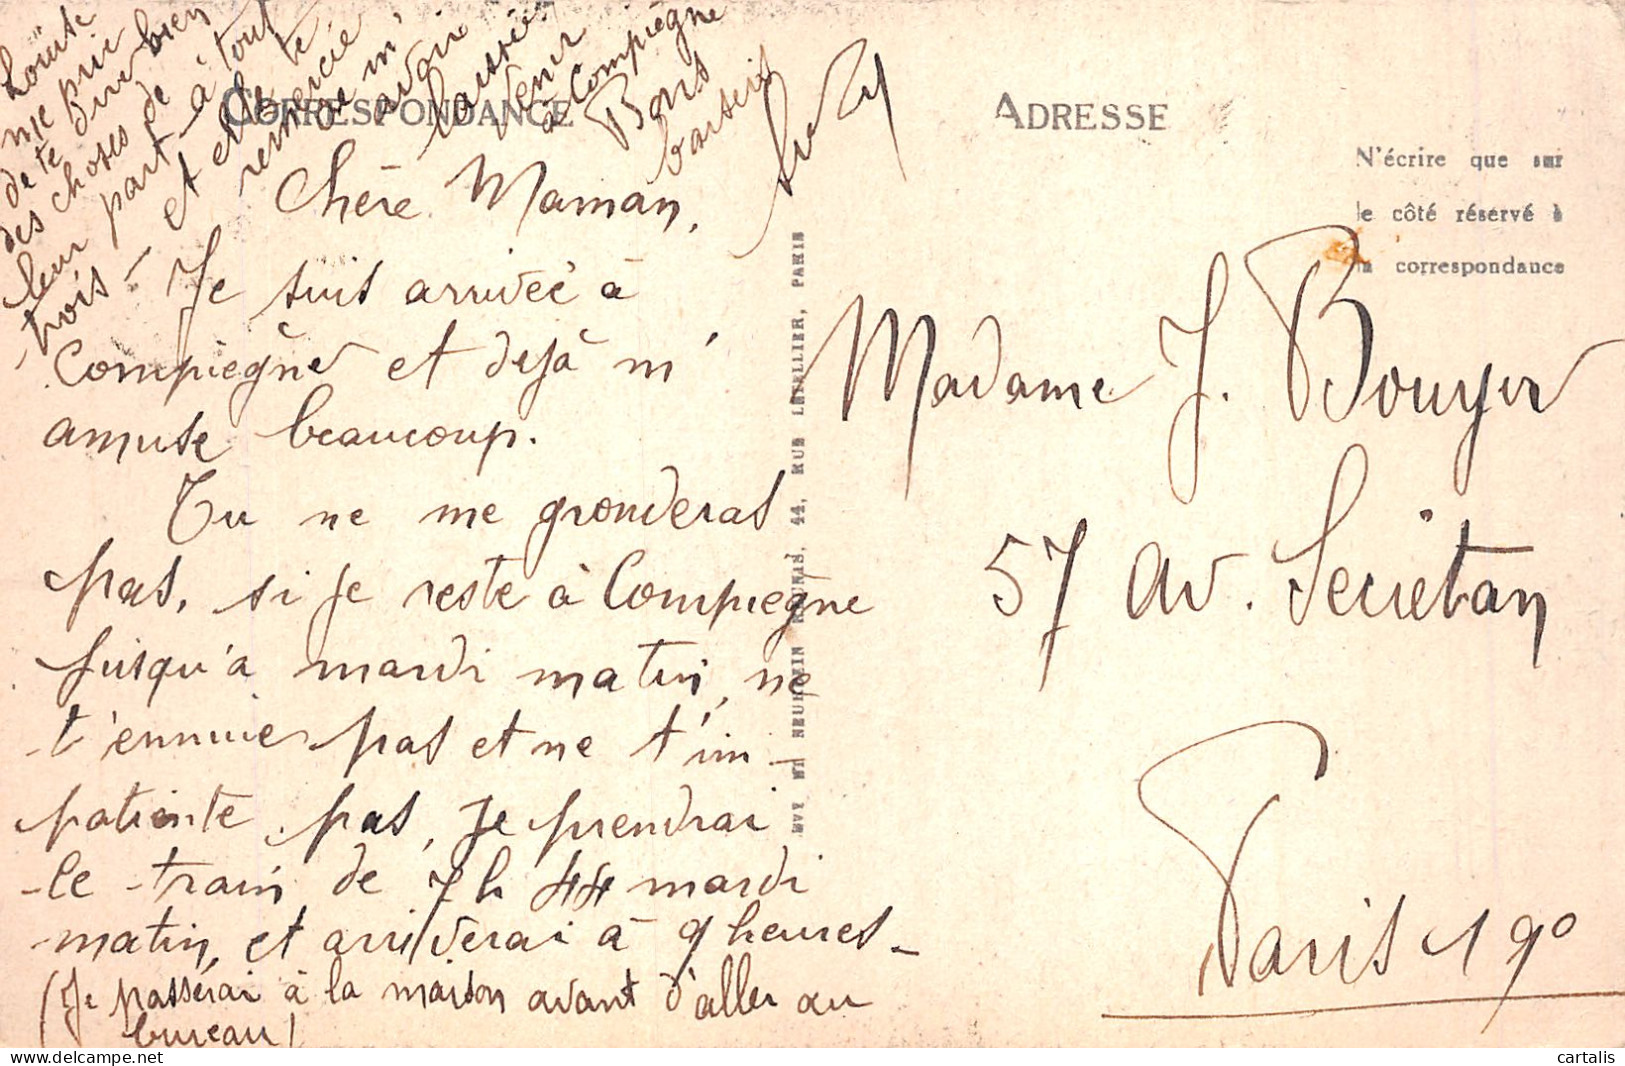 CORRESPONDANCE
Chère Maman,
Je suis arrivée à
Compiègne et déjà m'
amuse beaucoup.
Tu ne me gronderas
pas, si je reste à Compiegne
jusqu'à mardi matin, ne
t'ennuies pas et ne t'im-
patiente pas, je prendrai
le train de 7 h 44 mardi
matin, et arriverai à 9 heures-
(Je passerai à la maison avant d'aller au
bureau)
Louise
me prie
de te dire bien
des choses de
leur part - à tout
trois - et et je te
remercie
encore m'
avoir
laissée
venir
à Compiègne
Bons
baisers
Suzy
LEVY ET NEURDEIN REUNIS, 44, RUE LETELLIER, PARIS
ADRESSE
N'écrire que sur
le côté réservé à
la correspondance
Madame J. Bouyer
57 av. Secrétan
Paris 19°
cartalis